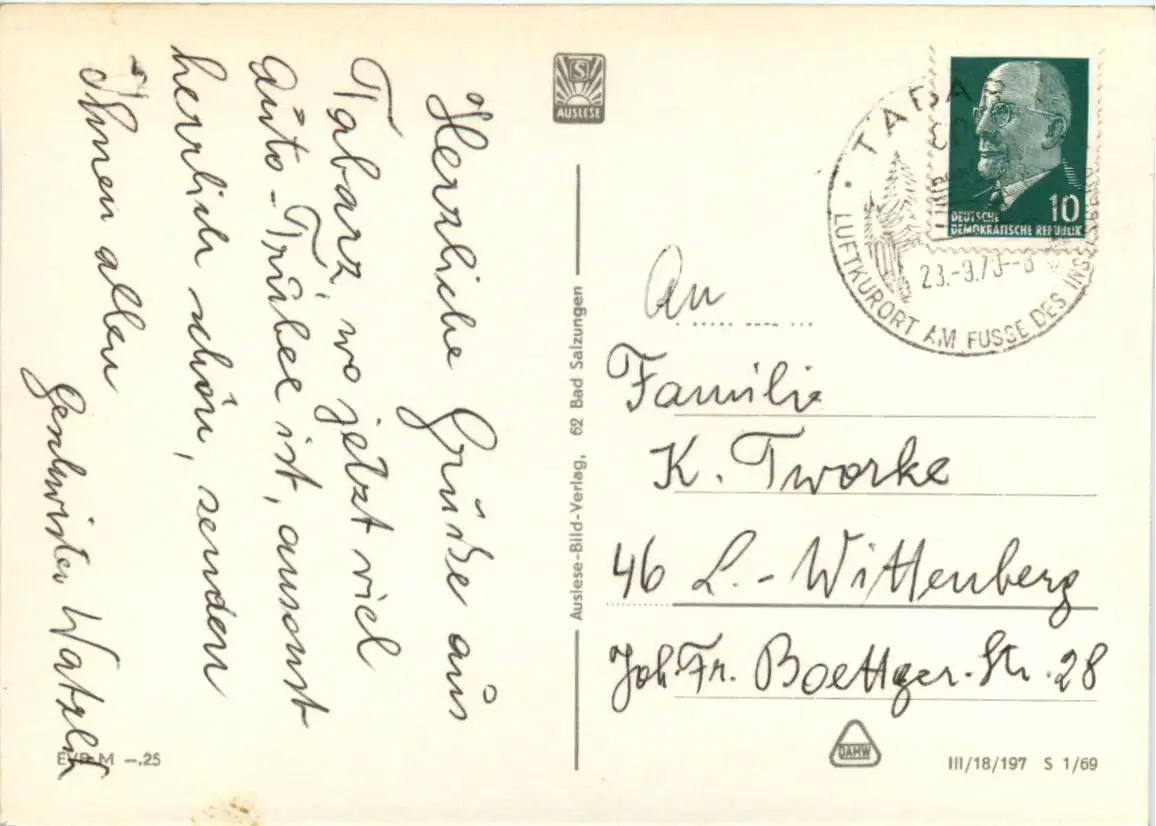 Herzliche Grüße aus
Tabarz, wo jetzt viel
Auto-Trubel ist, ansonst
herrlich schön, senden
Ihnen allen
Geschwister
S
AUSLESE
Auslese-Bild-Verlag, 62 Bad Salzungen
EVP M -,25
TABA
LUFTKURORT AM FUSSE DES INSELSBERG
23.-9.70--8
10
DEUTSCHE
DEMOKRATISCHE REPUBLIK
An
Familie
K. Tworke
46 L.-Wittenberg
Joh. Fr. Boettger-Str. 28
DAMW
III/18/197 S 1/69